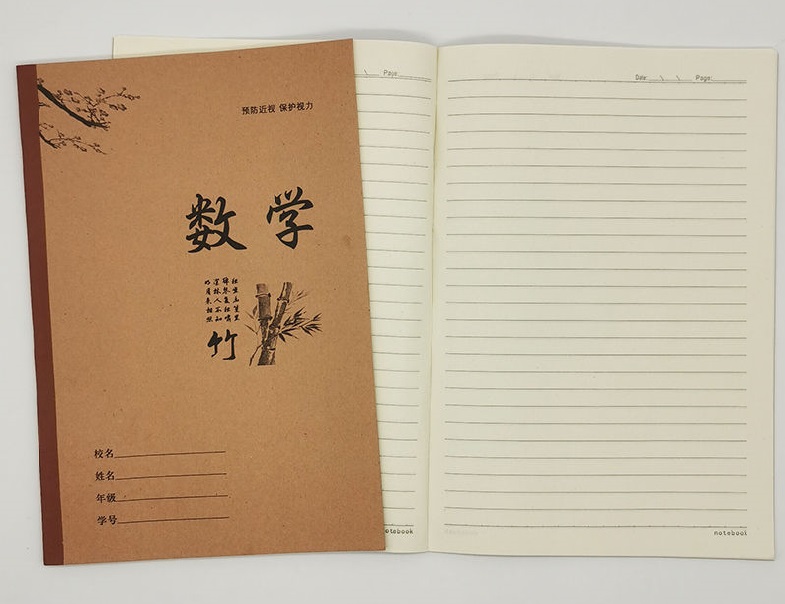 预防近视 保护视力
数学
独坐幽篁里
弹琴复长啸
深林人不知
明月来相照
竹
校名
姓名
年级
学号
Page:
otebook
Date: \ \ Page:
notebook